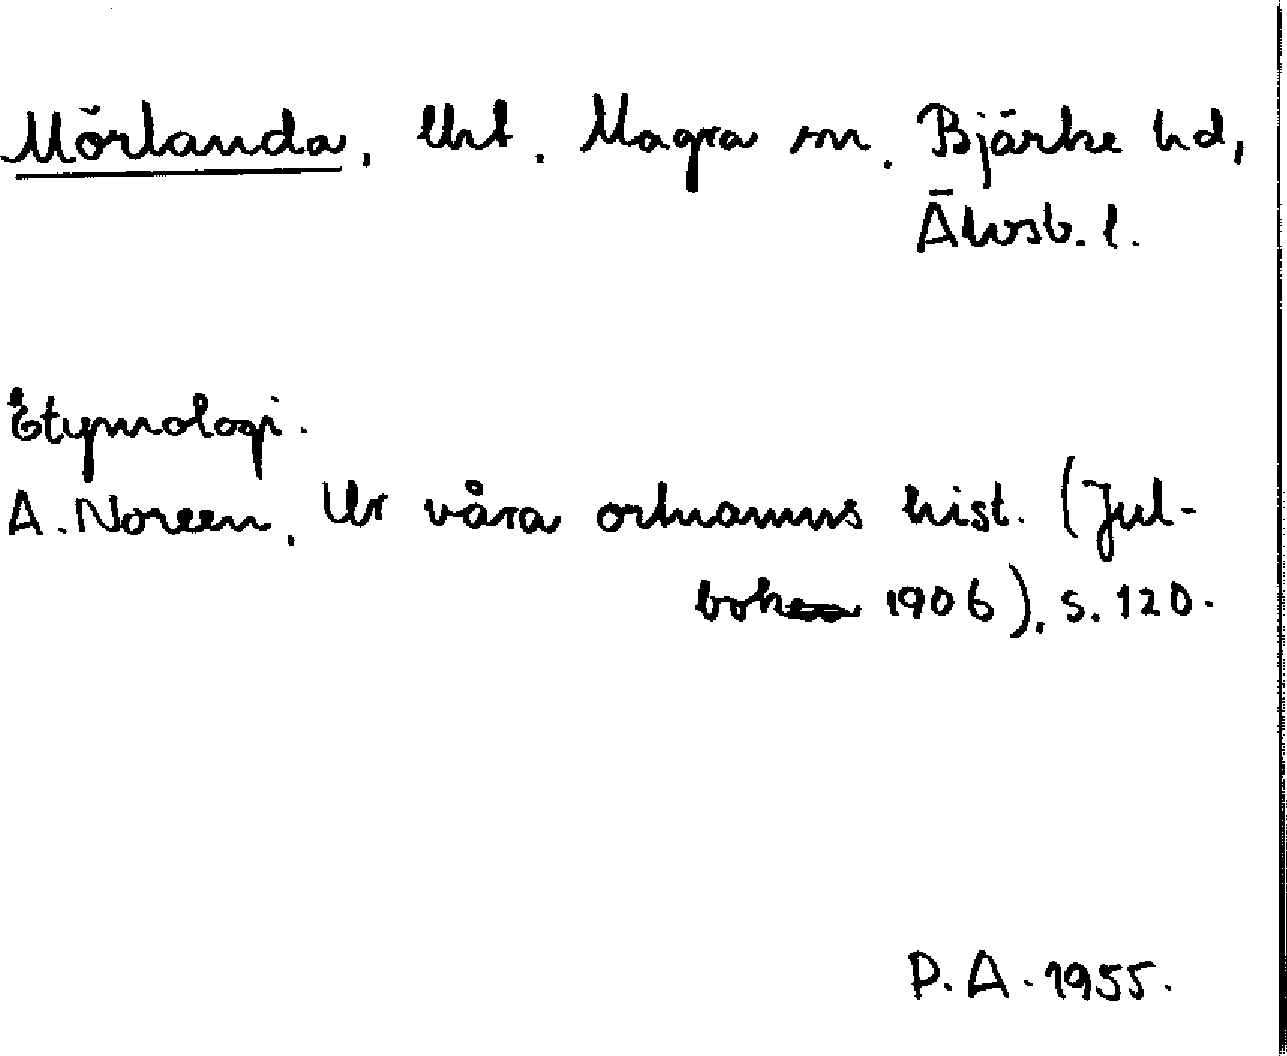 Mörlanda, tht. Magra sn. Bjärke hd,
Älvsb. l.
Etymologi.
A. Noreen, Ur våra ortnamns hist. (Jul-
boken 1906), s. 120.
P. A. 1955.